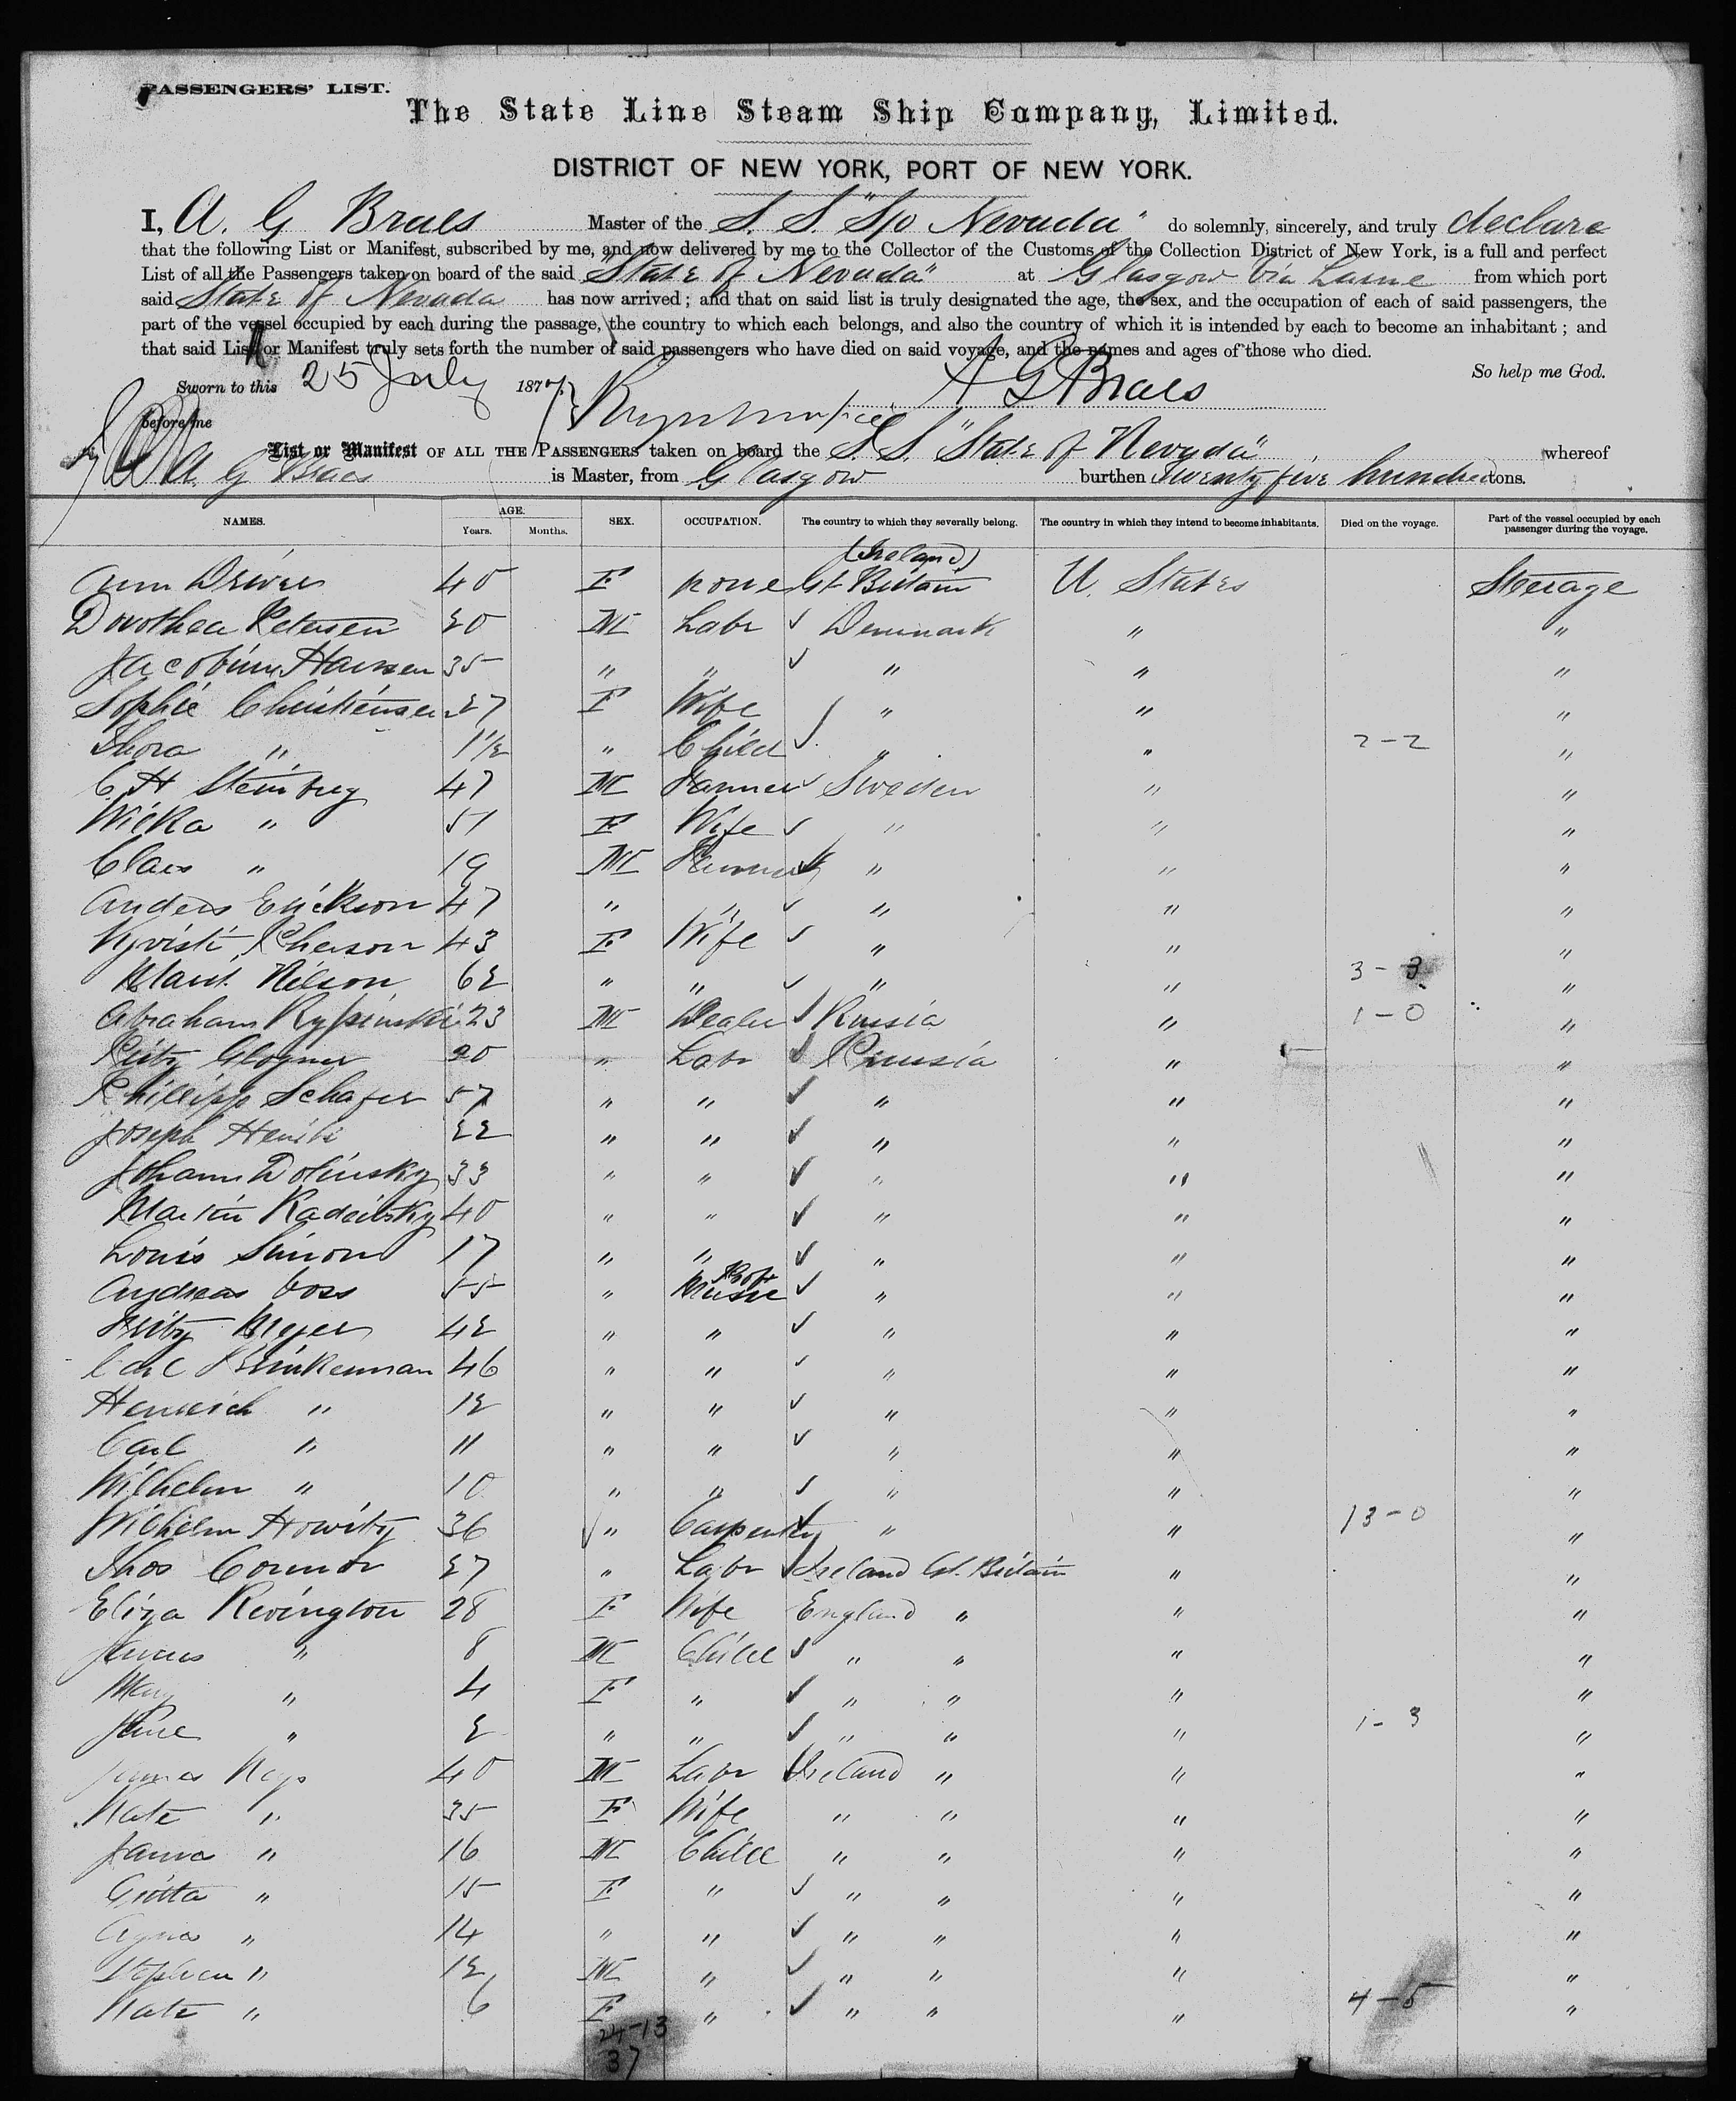 PASSENGERS' LIST.
The State Line Steam Ship Company, Limited.
DISTRICT OF NEW YORK, PORT OF NEW YORK.
I, A. G Braes Master of the S. S. "S/o Nevada" do solemnly, sincerely, and truly declare
that the following List or Manifest, subscribed by me, and now delivered by me to the Collector of the Customs of the Collection District of New York, is a full and perfect
List of all the Passengers taken on board of the said "State of Nevada" at Glasgow via Larne from which port
said State of Nevada has now arrived; and that on said list is truly designated the age, the sex, and the occupation of each of said passengers, the
part of the vessel occupied by each during the passage, the country to which each belongs, and also the country of which it is intended by each to become an inhabitant; and
that said List or Manifest truly sets forth the number of said passengers who have died on said voyage, and the names and ages of those who died.
So help me God.
Sworn to this 25 July 187 A G Braes
before me
List or Manifest OF ALL THE PASSENGERS taken on board the S. S. "State of Nevada" whereof
A. G Braes is Master, from Glasgow burthen Twenty five hundred tons.
NAMES. AGE. Years. Months. SEX. OCCUPATION. The country to which they severally belong. The country in which they intend to become inhabitants. Died on the voyage. Part of the vessel occupied by each passenger during the voyage.
(Ireland)
Ann 40 F none Gt Britain U. States Steerage
Dorothea Petersen 20 M Labr Denmark " "
Hansen 35 " " " " "
Sophie Christiensen 27 F Wife " " "
Thora " 1 1/2 " Child " " 2-2 "
C. H Steinburg 47 M Farmer Sweden " "
Wicka " 51 F Wife " " "
Claes " 19 M Farmer " " "
Anders Erickson 47 " " " " "
43 F Wife " " "
Nilson 62 " " " " 3-3 "
Abraham Rypinski 23 M Dealer Russia " 1-0 "
Glogner 20 " Labr Prussia " "
Phillipp Schafer 57 " " " " "
Joseph 22 " " " " "
Johann Dolinsky 33 " " " " "
Martin 40 " " " " "
Louis Simon 17 " " " " "
Andreas Voss 55 " Profr Music " " "
Fritz Meyer 42 " " " " "
Carl Brinkenman 46 " " " " "
Heinrich " 12 " " " " "
Carl " 11 " " " " "
Wilhelm " 10 " " " " "
Wilhelm Howitz 36 " Carpenter " " 13-0 "
Thos Connor 27 " Labr Ireland Gt. Britain " "
Eliza Revington 28 F Wife England " " "
James " 8 M Child " " " "
Mary " 4 F " " " " "
Jane " 2 " " " " " 1-3 "
James Keys 40 M Labr Ireland " " "
Kate " 35 F Wife " " " "
James " 16 M Child " " " "
" 15 F " " " " "
Agnes " 14 " " " " " "
Stephen " 12 M " " " " "
Kate " 6 F " " " " 4-5 "
24-13
37